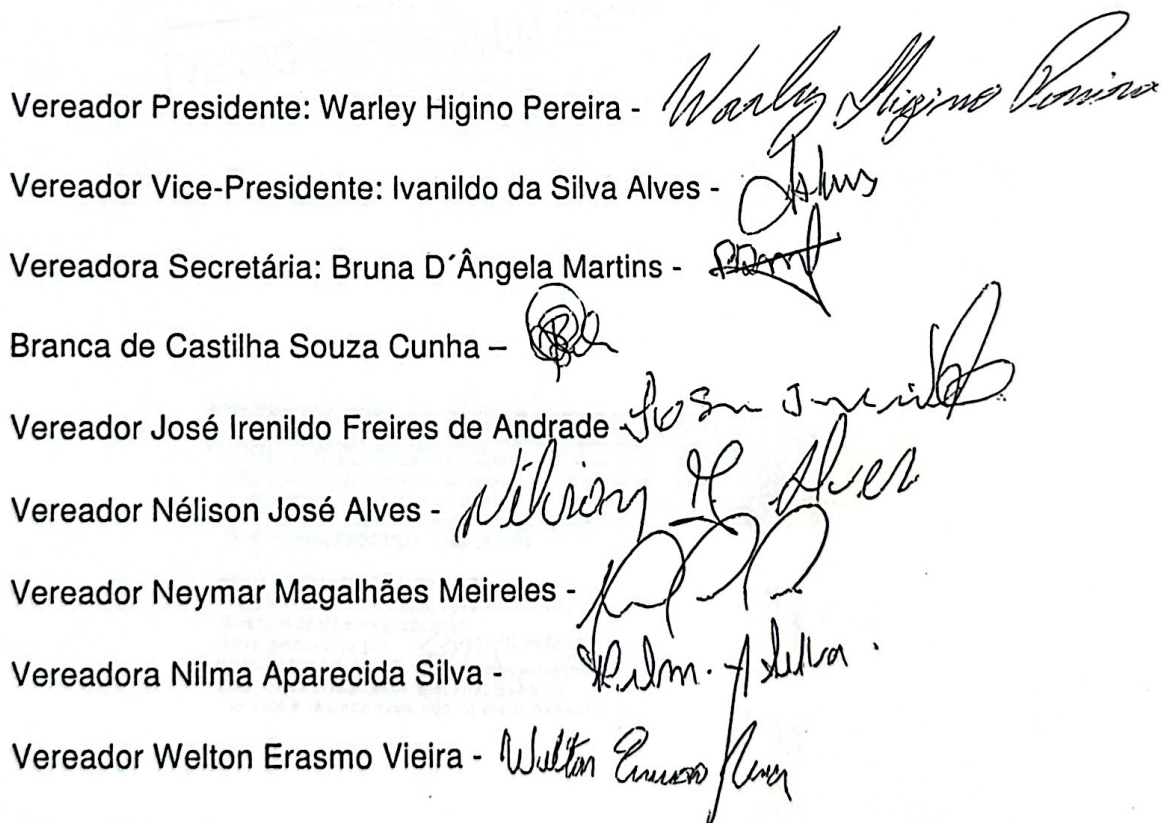 Vereador Presidente: Warley Higino Pereira - Warley Higino Pereira
Vereador Vice-Presidente: Ivanildo da Silva Alves -
Vereadora Secretária: Bruna D´Ângela Martins -
Branca de Castilha Souza Cunha –
Vereador José Irenildo Freires de Andrade -
Vereador Nélison José Alves - Nélison J Alves
Vereador Neymar Magalhães Meireles -
Vereadora Nilma Aparecida Silva - Nilm. A Silva.
Vereador Welton Erasmo Vieira - Welton Erasmo Vieira